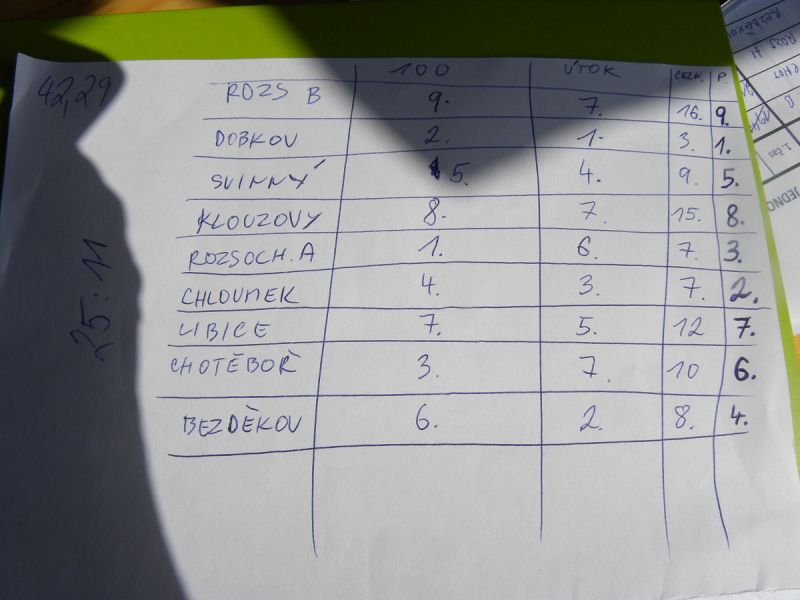 100 ÚTOK CELK. P.
42,29
ROZS B 9. 7. 16. 9.
DOBKOV 2. 1. 3. 1.
SVINNÝ 5. 4. 9. 5.
KLOUZOVY 8. 7. 15. 8.
ROZSOCH. A 1. 6. 7. 3.
25:11
CHLOUMEK 4. 3. 7. 2.
LIBICE 7. 5. 12 7.
CHOTĚBOŘ 3. 7. 10 6.
BEZDĚKOV 6. 2. 8. 4.
BEZDĚKOV
ROZS A
CHOT
B
1. čas
JEDNO